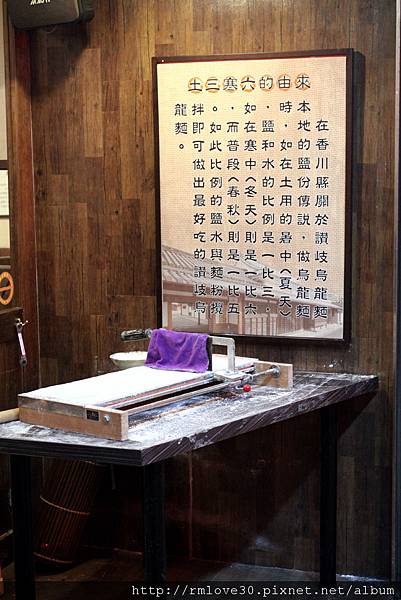 土三寒六的由來
在香川縣關於讚岐烏龍麵
本地的鹽份傳說，做烏龍麵
時，如在土用的暑中(夏天)
，鹽和水的比例是一比三，
如在寒中(冬天)則是一比六
，而普段(春秋)則是一比五
。如此比例的鹽水與麵粉攪
拌即可做出最好吃的讚岐烏
龍麵。
http://rmlove30.pixnet.net/album